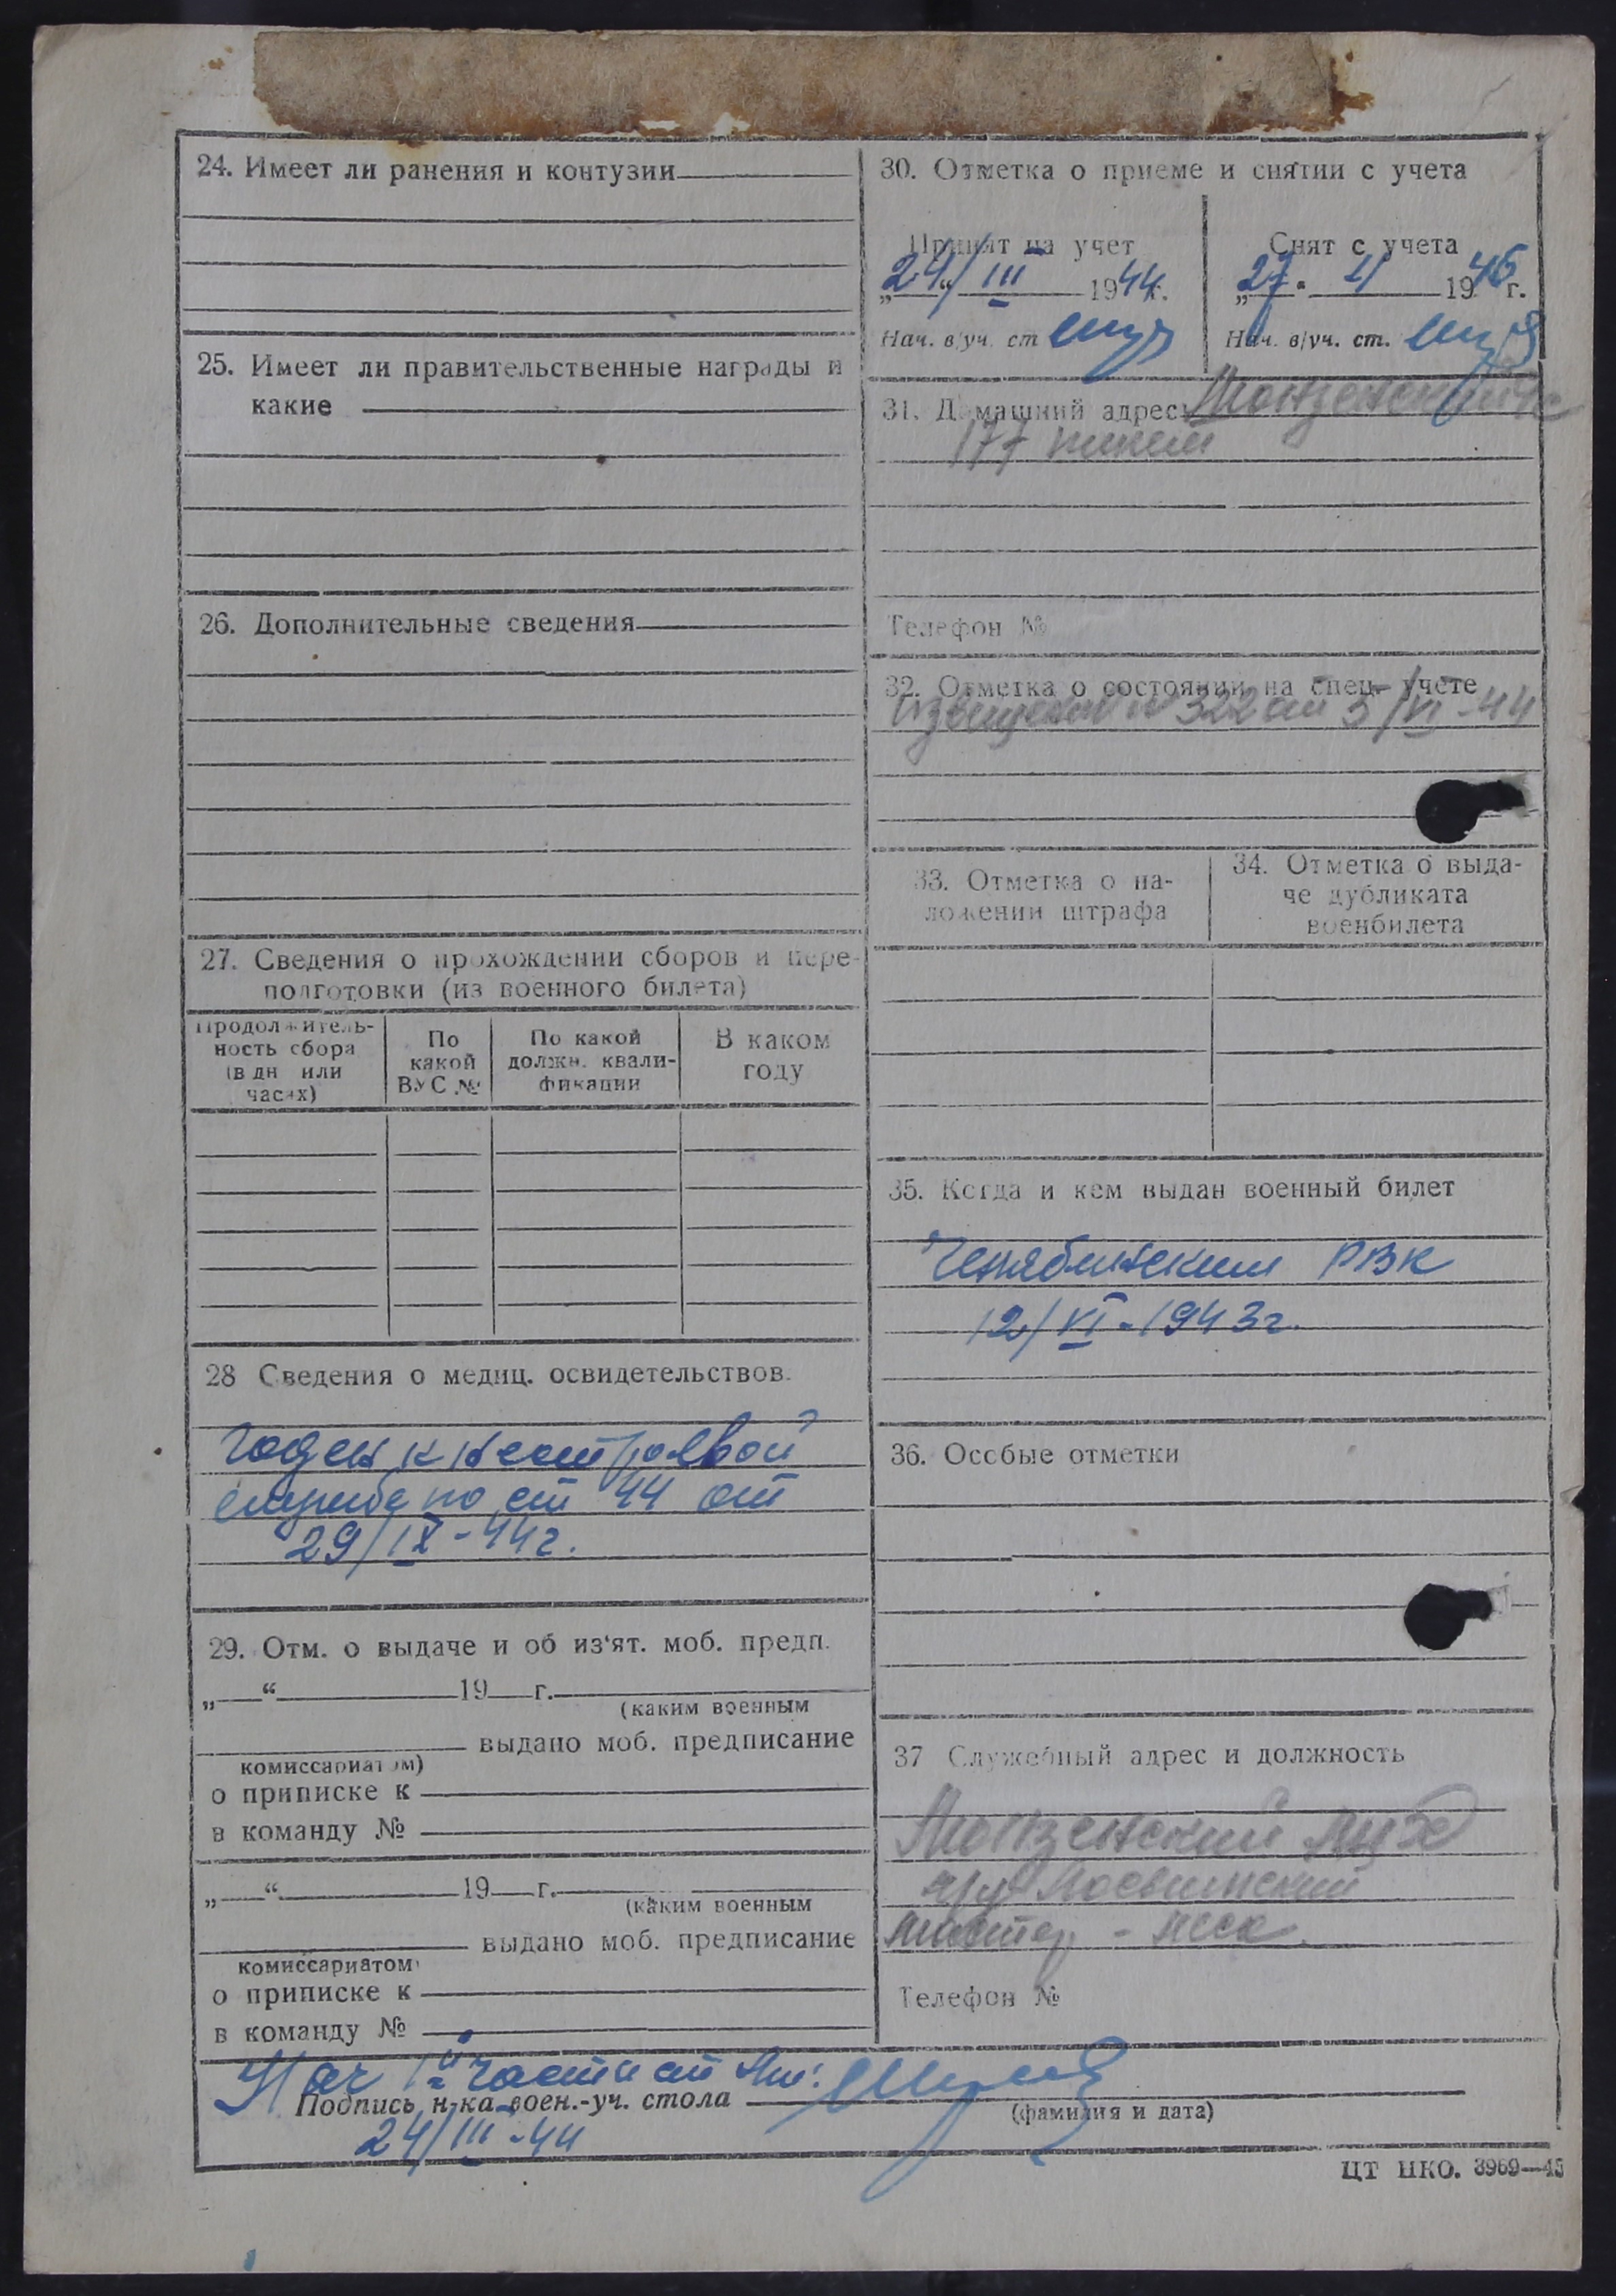 24. Имеет ли ранения и контузии
25. Имеет ли правительственные награды и
какие
26. Дополнительные сведения
27. Сведения о прохождении сборов и пере-
подготовки (из военного билета)
Продолжитель-
ность сбора
(в дн или
часах)
По
какой
ВУС №
По какой
должн. квали-
фикации
В каком
году
28 Сведения о медиц. освидетельствов.
Годен к нестроевой
службе по ст 44 от
29/IX-44г.
29. Отм. о выдаче и об из‘ят. моб. предп.
„ “ 19 г.
(каким военным
выдано моб. предписание
комиссариатом)
о приписке к
в команду №
„ “ 19 г.
(каким военным
выдано моб. предписание
комиссариатом)
о приписке к
в команду №
30. Отметка о приеме и снятии с учета
Принят на учет
„24“ III 1944г.
Нач. в/уч. ст
Снят с учета
„27“ 4 1946г.
Нач. в/уч. ст.
31. Домашний адрес:
177
Телефон №
32. Отметка о состоянии на спец. учете
№ 322 от 5/VI-44
33. Отметка о на-
ложении штрафа
34. Отметка о выда-
че дубликата
военбилета
35. Когда и кем выдан военный билет
Челябинский РВК
12/VI-1943г.
36. Особые отметки
37 Служебный адрес и должность
Монзенский
мастер - леса.
Телефон №
Нач 1й части ст
Подпись н-ка воен.-уч. стола
(фамилия и дата)
24/III-44
ЦТ НКО. 3969—43